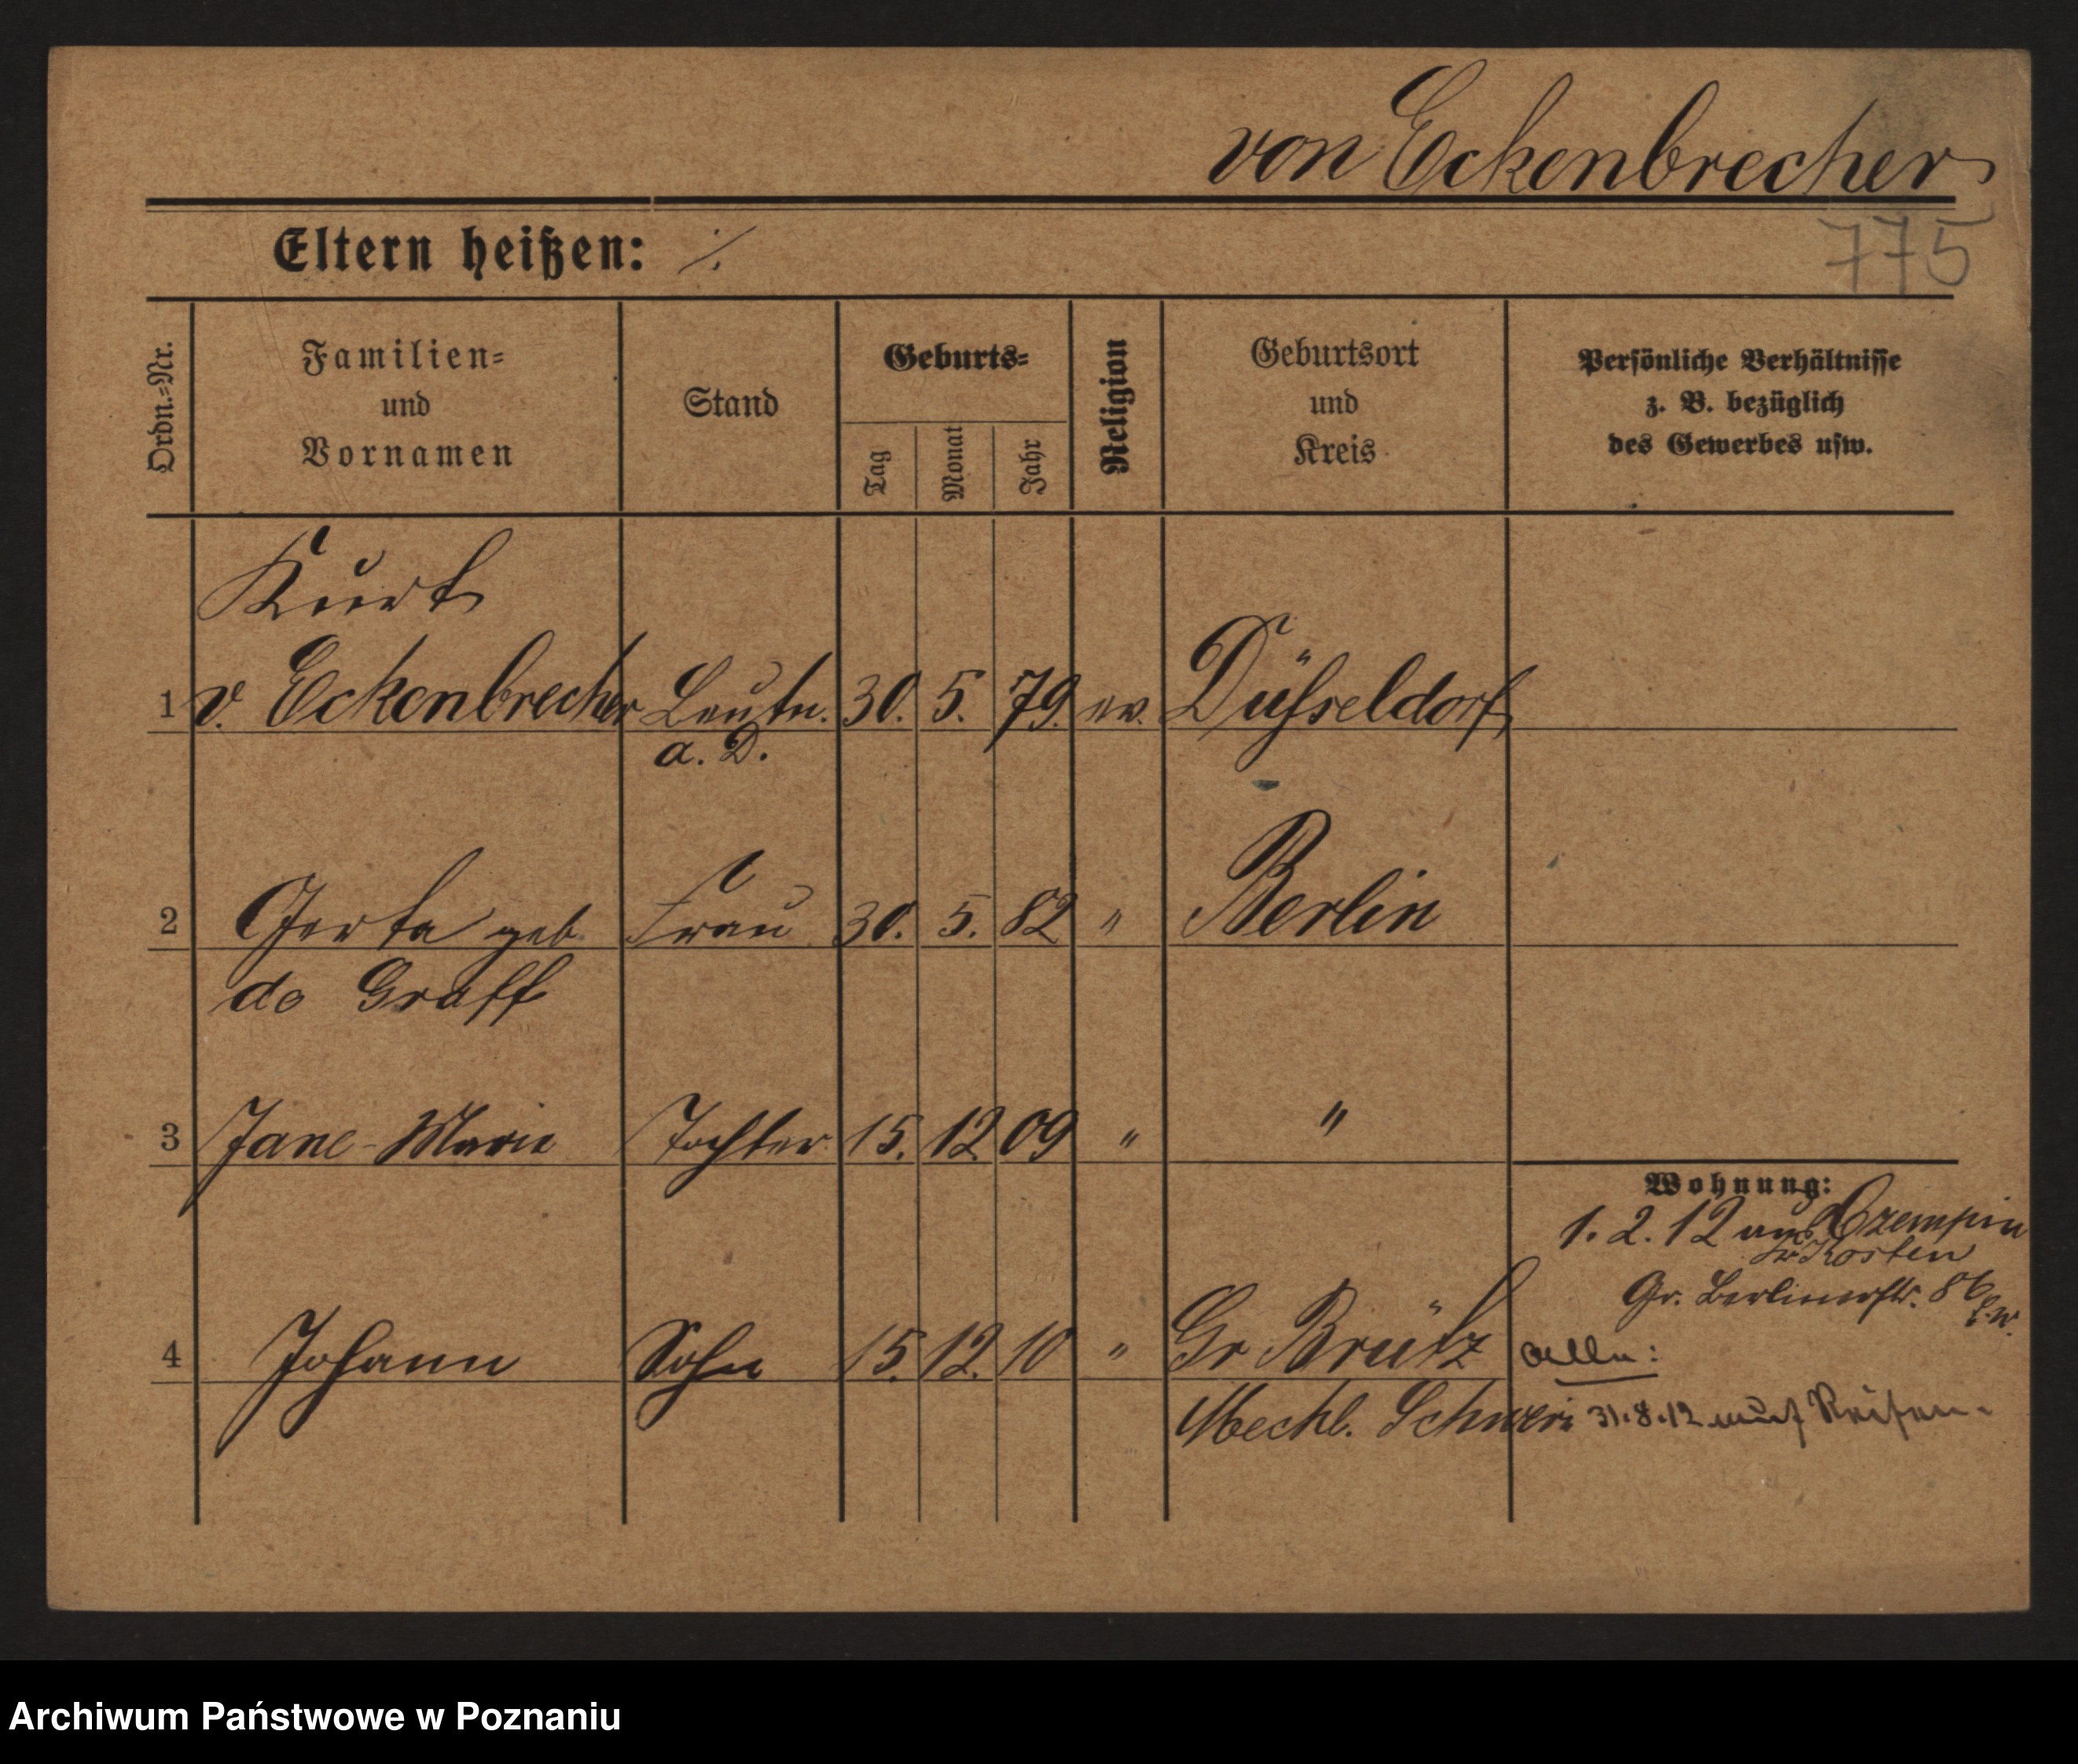 von Eckenbrecher
775
Eltern heißen: ·/.
Ordn.=Nr.
Familien=
und
Vornamen
Stand
Geburts=
Tag
Monat
Jahr
Religion
Geburtsort
und
Kreis
Persönliche Verhältnisse
z. B. bezüglich
des Gewerbes usw.
Kurt
1 v. Eckenbrecher Leutn. 30. 5. 79. ev. Düsseldorf
a. D.
2 Gerta geb. Frau 30. 5. 82 " Berlin
de Graff
3 Jane-Marie Tochter 15. 12 09 " "
Wohnung:
1. 2. 12 aus Czempin
Kosten
Gr. Berlinerstr. 86
4 Johann Sohn 15. 12. 10 " Gr Brütz alle:
Meckl. Schwerin 31.8.12 auf Reisen.
Archiwum Państwowe w Poznaniu